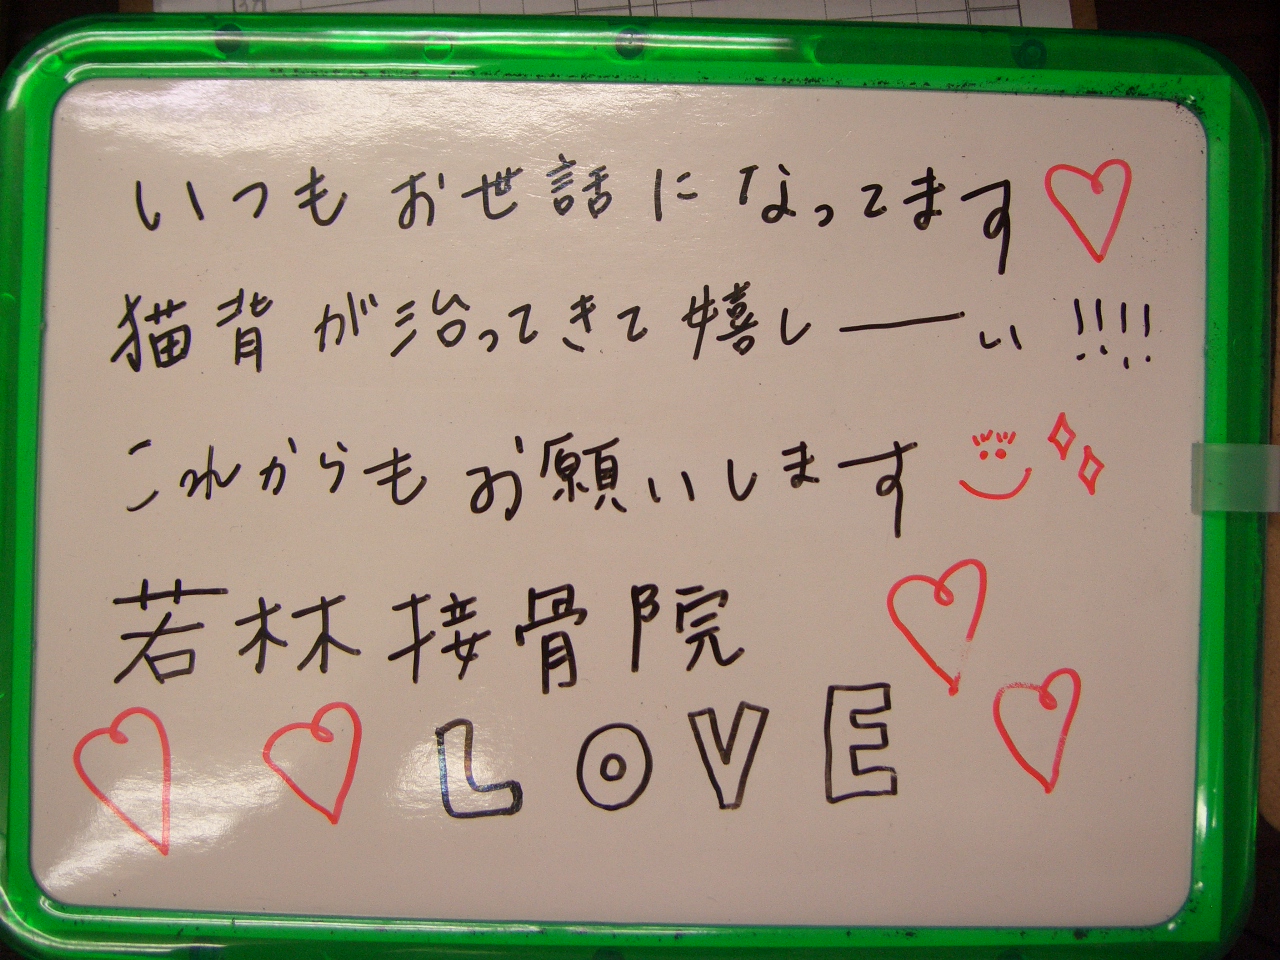 いつもお世話になってます
猫背が治ってきて嬉しーい!!!!
これからもお願いします
若林接骨院
LOVE